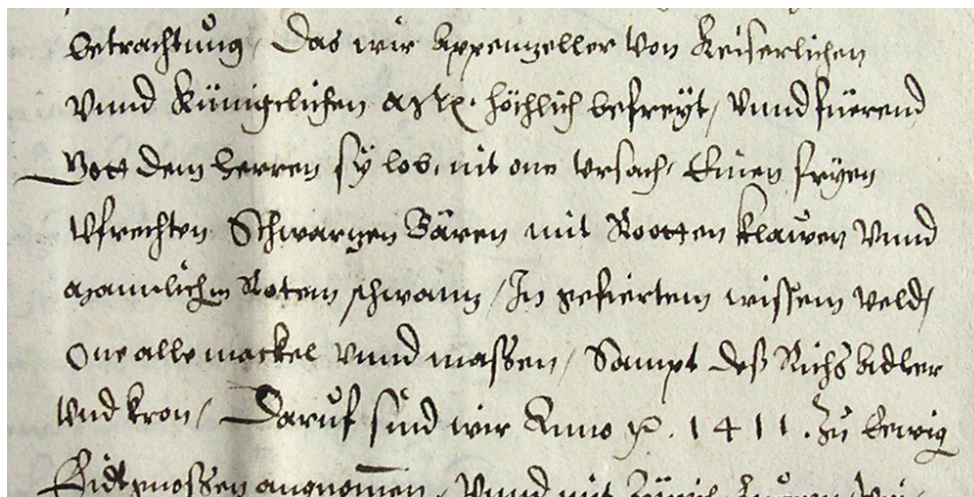 betrachtung / Das wir Appenzeller Von Keiserlichen
Vnnd Künigclichen höchlich befreyt / Vnnd fuerend
Gott dem herren sy lob, nit one Vrsach, Einen fryen
Vfrechten Schwartzen Bären mit Rootten klawen Vnnd
Mannlichm Rotem schwantz / In gefiertem wissem veld /
One alle mackel Vnnd massen / Sampt deß Richs Adler
Vnd kron / Daruf sind wir Anno 1411. Zu Eewig
Eidtgnossen angnomen, Vnnd mit Zürich